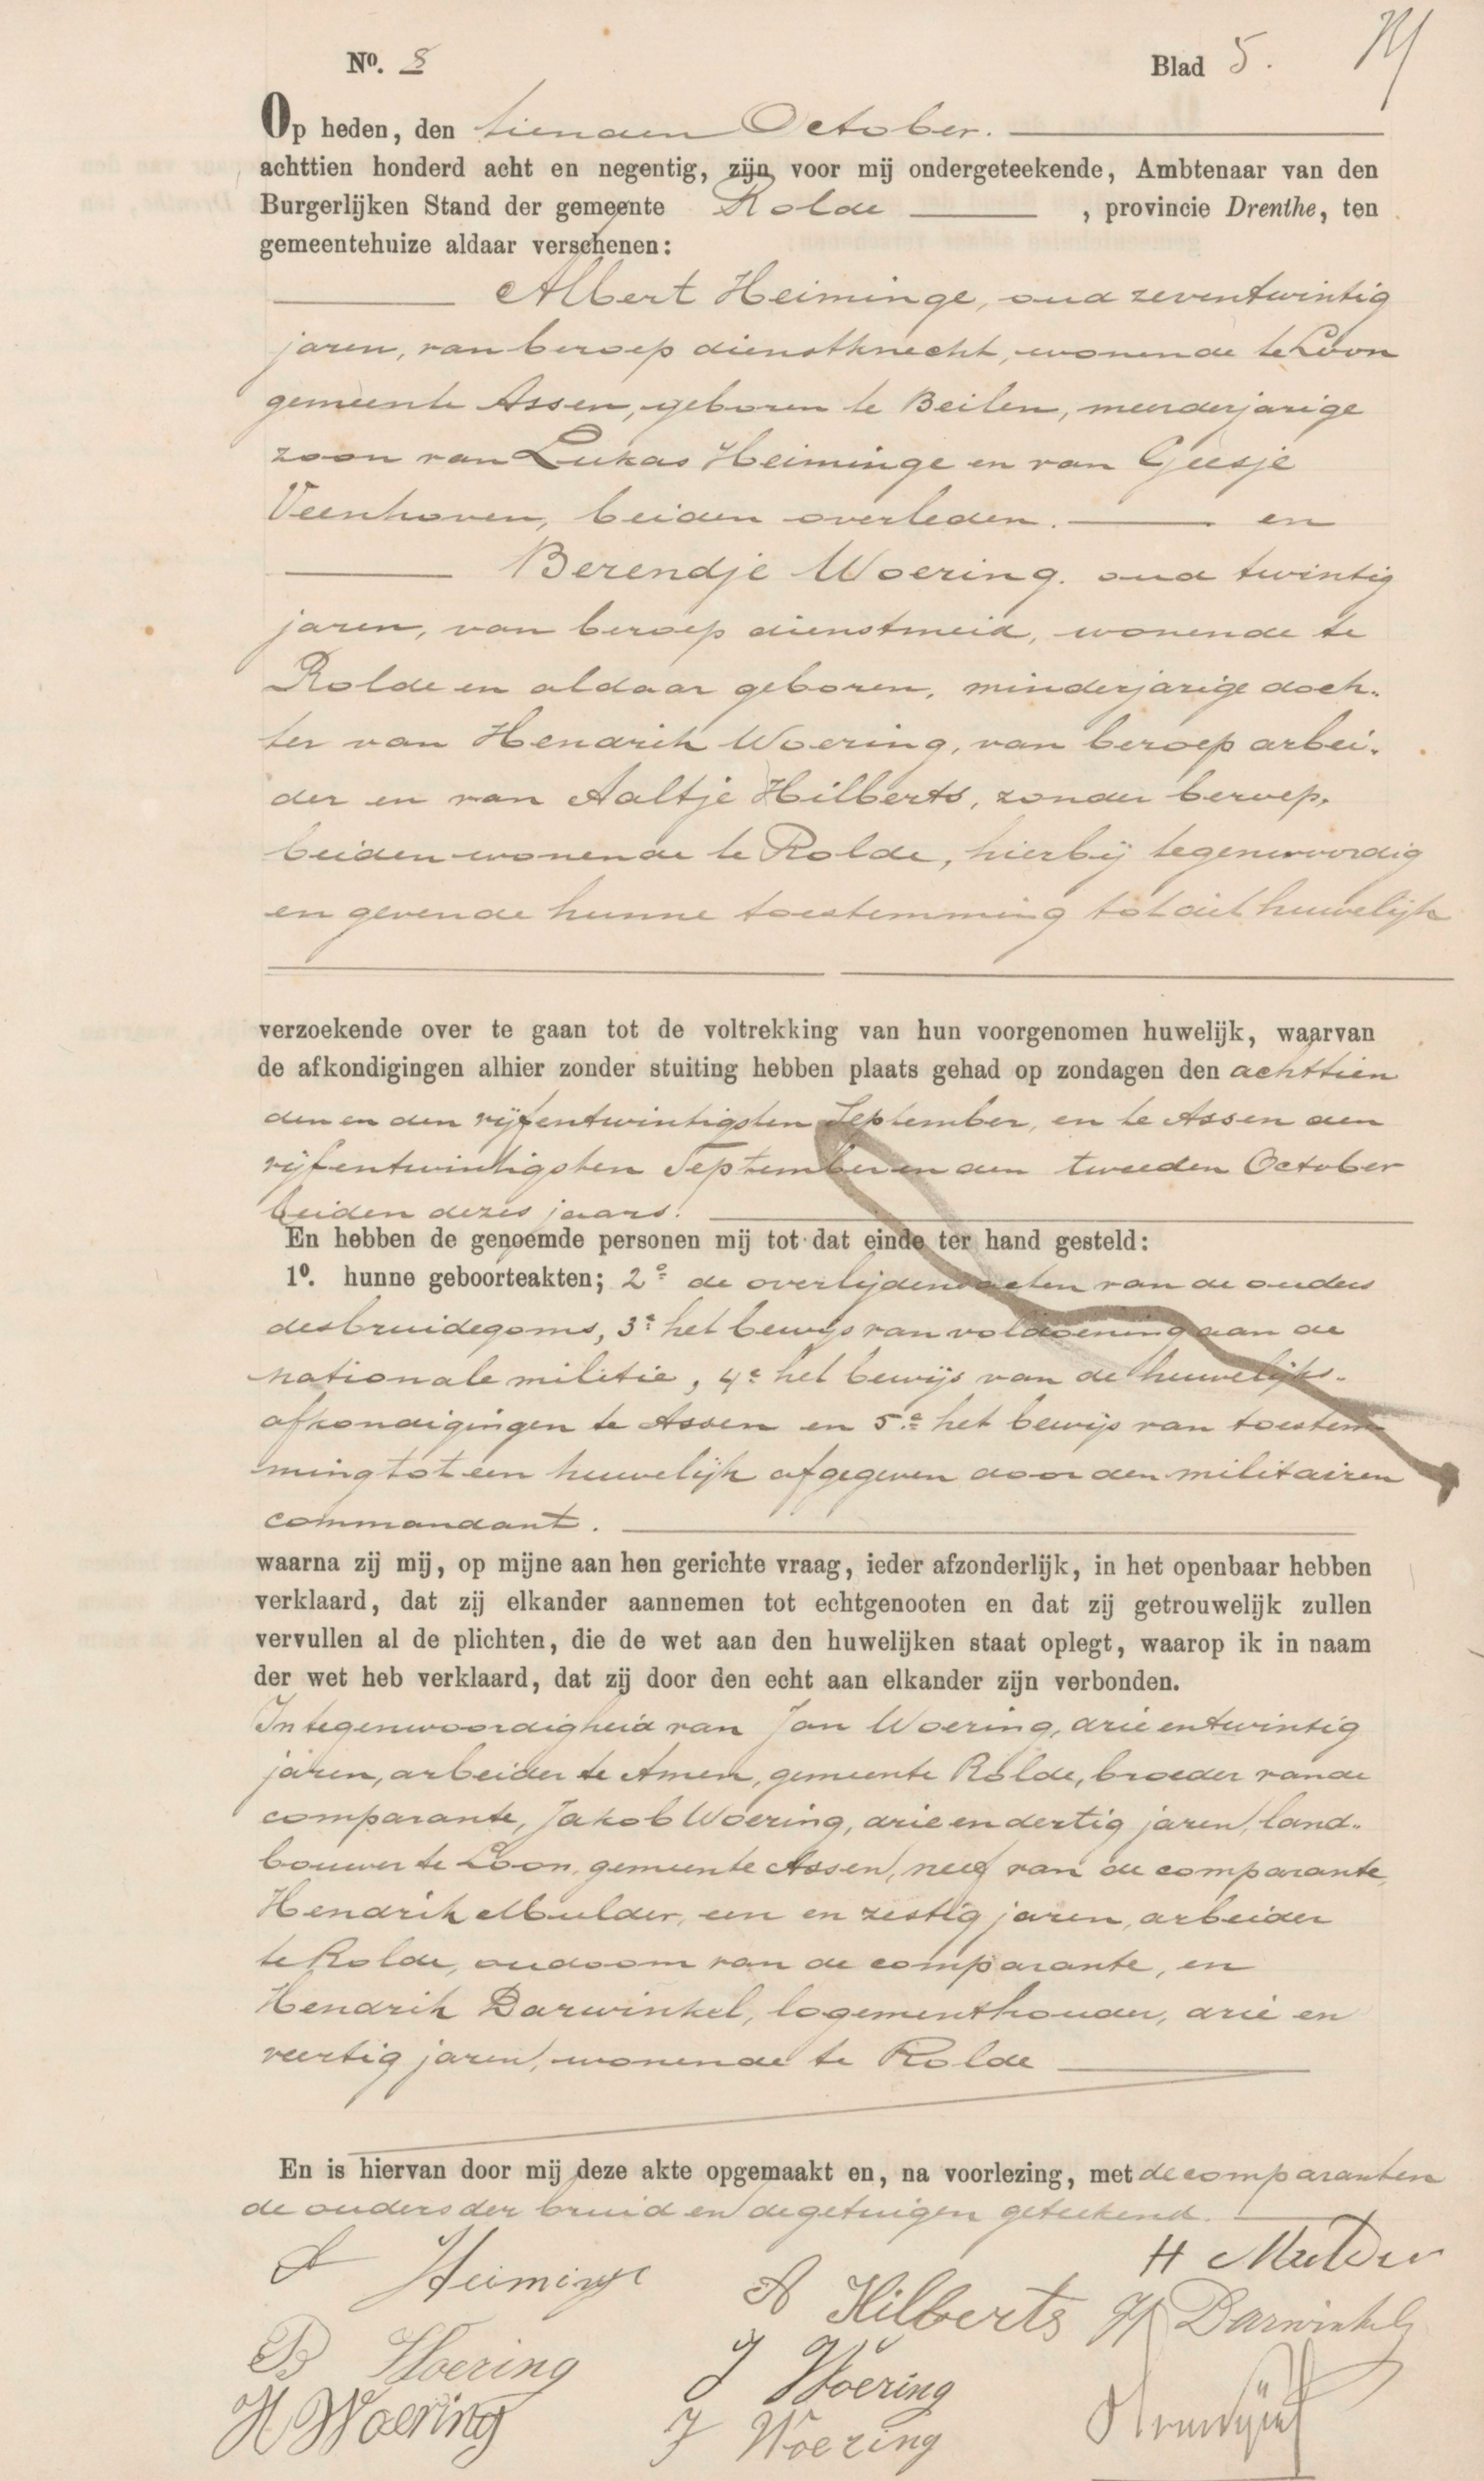 Nº. 8 Blad 5.
Op heden, den tienden October.
achttien honderd acht en negentig, zijn voor mij ondergeteekende, Ambtenaar van den
Burgerlijken Stand der gemeente Rolde , provincie Drenthe, ten
gemeentehuize aldaar verschenen:
Albert Heiminge, oud zeventwintig
jaren, van beroep dienstknecht, wonende te Loon
gemeente Assen, geboren te Beilen, meerderjarige
zoon van Lukas Heiminge en van Geesje
Veenhoven, beiden overleden. en
Berendje Woering. oud twintig
jaren, van beroep dienstmeid, wonende te
Rolde en aldaar geboren, minderjarige doch-
ter van Hendrik Woering, van beroep arbei-
der en van Aaltje Hilberts, zonder beroep,
beiden wonende te Rolde, hierbij tegenwoordig
en gevende hunne toestemming tot dit huwelijk
verzoekende over te gaan tot de voltrekking van hun voorgenomen huwelijk, waarvan
de afkondigingen alhier zonder stuiting hebben plaats gehad op zondagen den achttien
den en den vijfentwintigsten September, en te Assen den
vijfentwintigsten September en den tweeden October
beiden dezes jaars.
En hebben de genoemde personen mij tot dat einde ter hand gesteld:
1º. hunne geboorteakten; 2e de overlijdensacten van de ouders
des bruidegoms, 3e het bewijs van voldoening aan de
nationale militie, 4e het bewijs van de huwelijks-
afkondigingen te Assen en 5e het bewijs van toestem
ming tot een huwelijk afgegeven door den militairen
commandant.
waarna zij mij, op mijne aan hen gerichte vraag, ieder afzonderlijk, in het openbaar hebben
verklaard, dat zij elkander aannemen tot echtgenooten en dat zij getrouwelijk zullen
vervullen al de plichten, die de wet aan den huwelijken staat oplegt, waarop ik in naam
der wet heb verklaard, dat zij door den echt aan elkander zijn verbonden.
In tegenwoordigheid van Jan Woering, drie en twintig
jaren, arbeider te Amen, gemeente Rolde, broeder van de
comparante, Jakob Woering, drie en dertig jaren, land-
bouwer te Loon, gemeente Assen, neef van de comparante,
Hendrik Mulder, een en zestig jaren, arbeider
te Rolde, oudoom van de comparante, en
Hendrik Darwinkel, logementhouder, drie en
veertig jaren, wonende te Rolde
En is hiervan door mij deze akte opgemaakt en, na voorlezing, met de comparanten
de ouders der bruid en de getuigen geteekend.
A Heiminge
H Mulder
A Hilberts
H Darwinkel
B Woering
J Woering
H Woering
J Woering